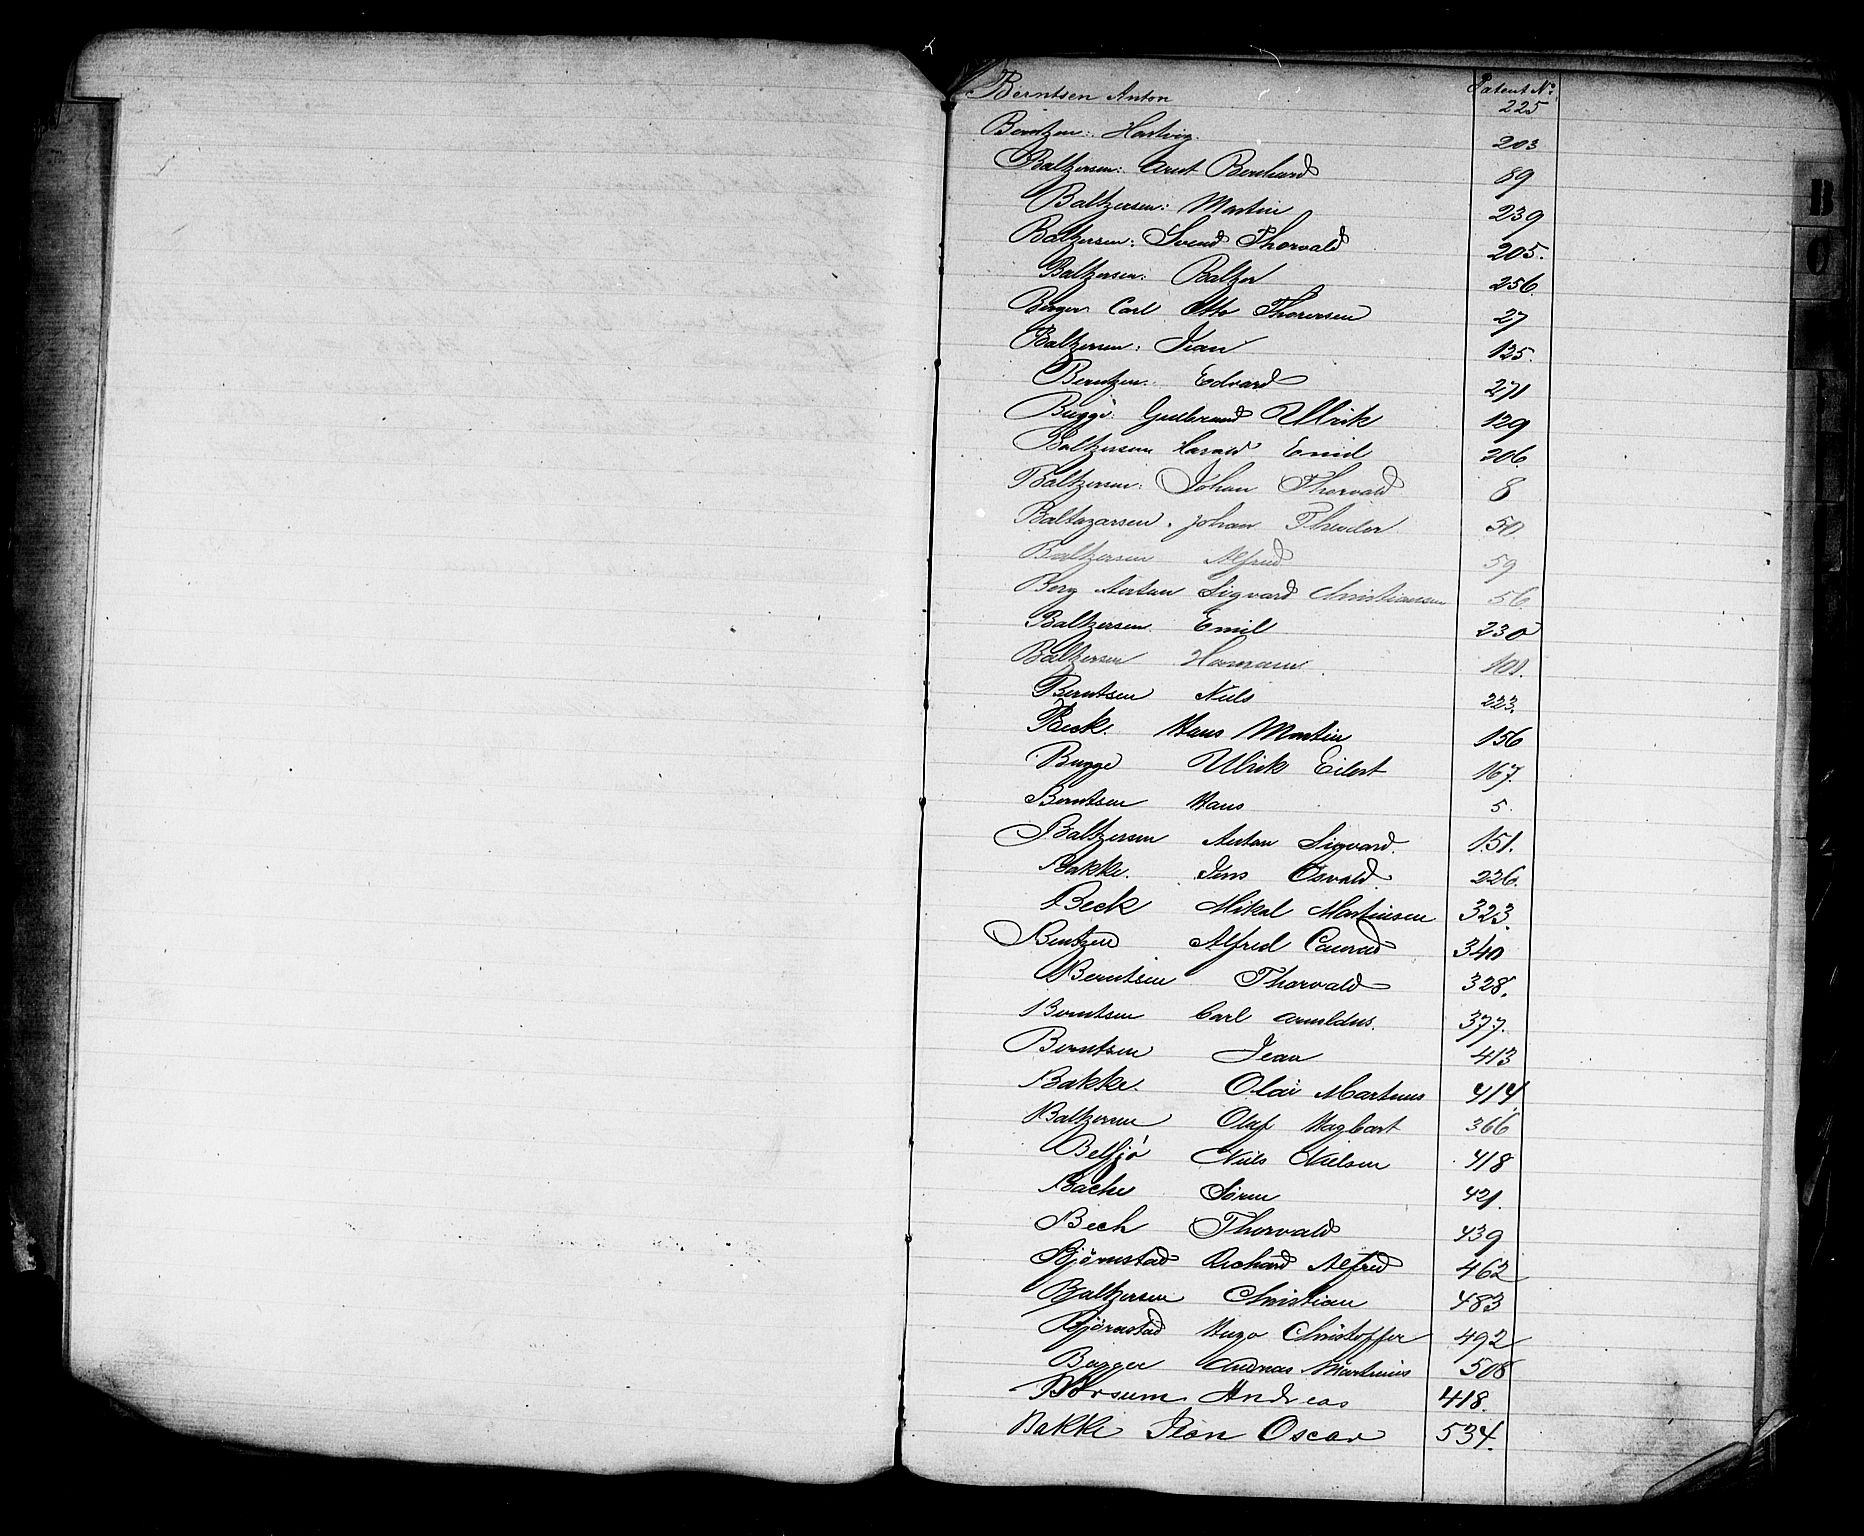 Patent No.
Berntsen Anton 225
Berntzen: Hartvig 203
Baltzersen: Arnt Bernhard 89
Baltzersen: Martin 239
Baltzersen: Svend Thorvald 205.
Baltzersen: Baltzer 256.
Berger Carl Otto Thoresen 27
Baltzersen: Jean 135.
Berntzen. Edvard 271
Bugge. Gulbrand Ulrik 129
Baltzersen Harald Emil 206.
Baltzersen: Johan Thorvald 8
Baltazarsen. Johan Theodor 50.
Baltzersen Alfred 59
Berg Anton Sigvard Christiansen 56.
Baltzersen. Emil 230
Baltzersen Hermann. 101.
Berntsen Niels 223.
Beck. Hans Martin 156
Bugge Ulrik Eilert 167.
Berntsen Hans 5.
Baltzersen Anton Sigvard. 151.
Bakke. Jens Osvald. 226.
Beck Mikal Martinsen 323.
Bentzen Alfred Conrad 340
Berntsen Thorvald 328.
Berntsen Carl Arnoldus. 377.
Berntsen Jean 413
Bakke. Olai Martinus 414.
Baltzersen Oluf Hagbart 366
Belsjø Niels Nielsen 418
Bache Søren 421.
Bech Thorvald 439
Bjørnstad Richard Alfred 462
Baltzersen Christian 483
Bjørnstad Hugo Christoffer 492
Bagger Andreas Martinius 508
Børsum Andreas 418.
Bakke Jean Oscar 534.
B
C